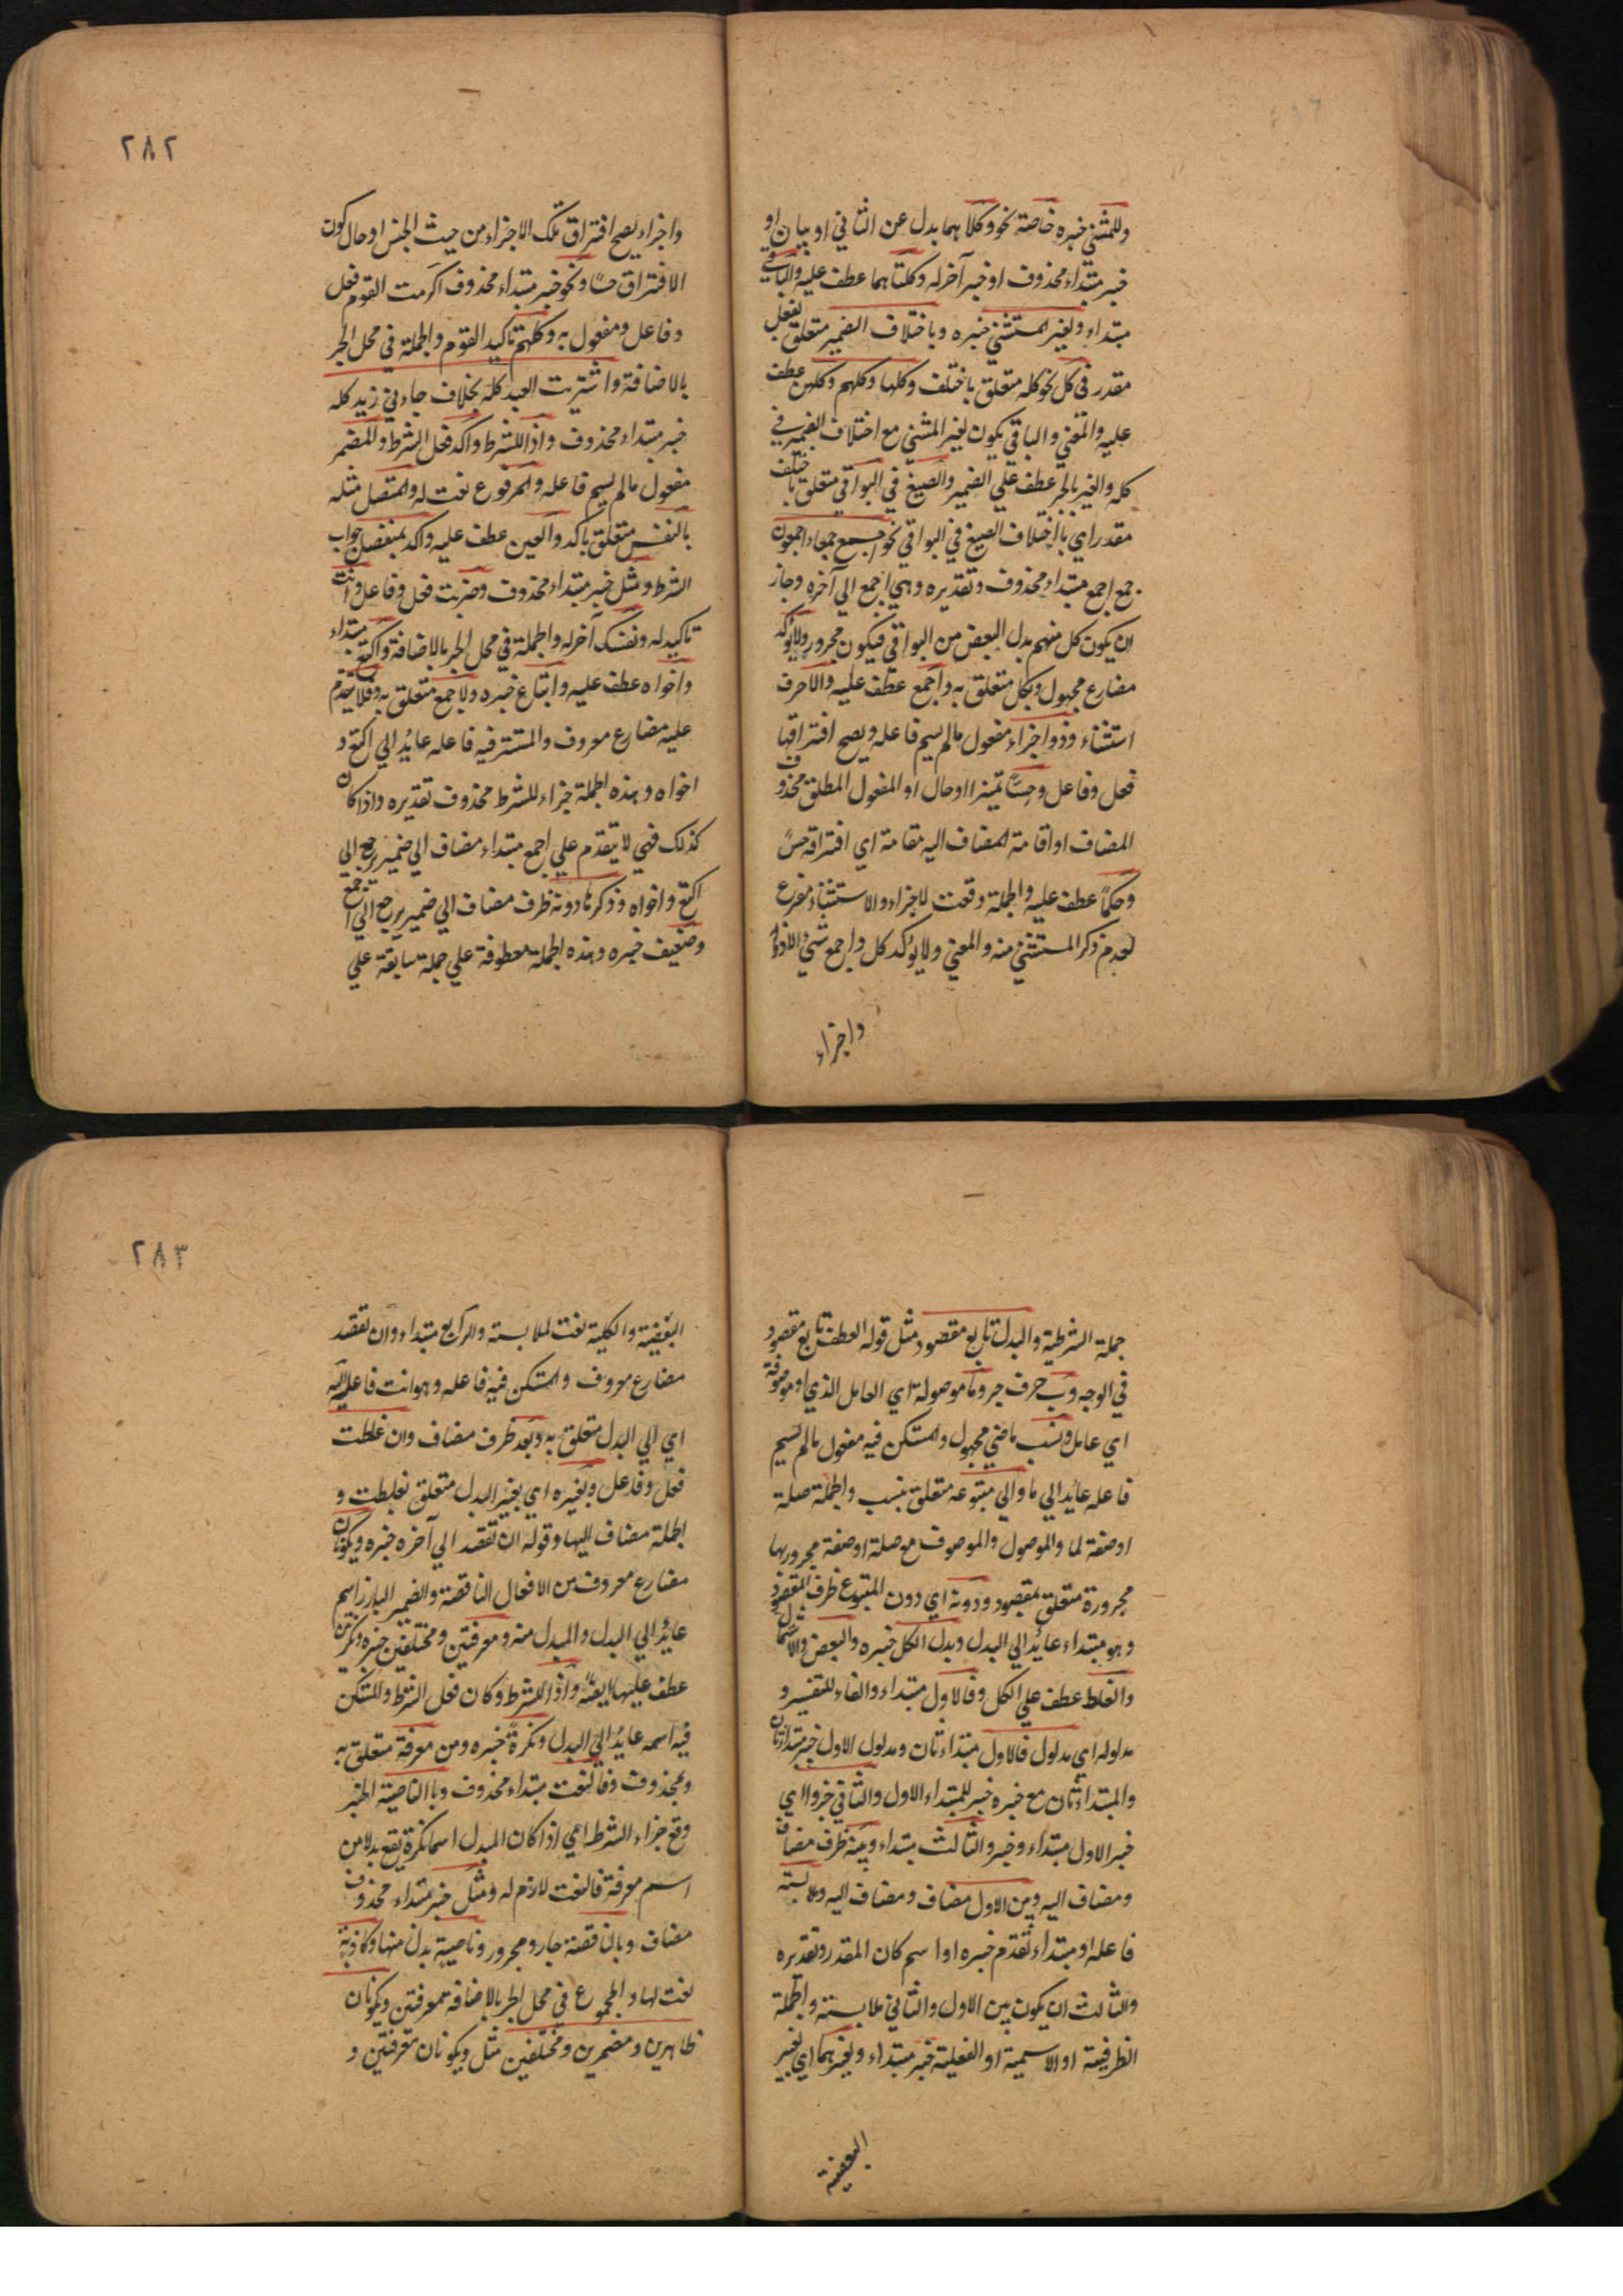 وللمثنى خبره خاصة نحو وكلا هما بدل عن الثاني او بيان او
خبر مبتداء محذوف او خبر آخر له وكلتا هما عطف عليه والباقي
مبتداء ولغير المثنى خبره وباختلاف الضمير متعلق بفعل
مقدر في كل نحو كله متعلق باختلف وكلها وكلهم وكلهن عطف
عليه والمعني والباقي يكون لغير المثنى مع اختلاف الضمير في
كله والغير بالجر عطف علي الضمير والصيغ في البواقي متعلق باختلف
مقدر اي باختلاف الصيغ في البواقي نحو اجمع جمعاء اجمعون
جمع اجمع مبتداء محذوف وتقديره وهي اجمع الي آخره وجاز
ان يكون كل منهم بدل البعض من البواقي فيكون مجرور ولا يؤكد
مضارع مجهول وبكل متعلق به واجمع عطف عليه والا حرف
استثناء وذو اجزاء مفعول مالم يسم فاعله ويصح افتراقها
فعل وفاعل وحسًا تميزا اوحال او المفعول المطلق محذوف
المضاف او اقامة المضاف اليه مقامة اي افتراقه حسً
وحكمًا عطف عليه والجملة وقعت لاجزاء والاستثناء مفرع
لعدم ذكر المستثنى منه والمعني ولا يؤكد كل واجمع شي الا ذو
واجزاء
٢٨٢
واجزاء يصح افتراق تلك الاجزاء من حيث الجنس اوحال كون
الافتراق حسًا ونحو خبر مبتداء محذوف اكرمت القوم فعل
وفاعل ومفعول به وكلهم تاكيد القوم والجملة في محل الجر
بالاضافة واشتريت العبد كله بخلاف جاءني زيد كله
خبر مبتداء محذوف واذا للشرط واكد فعل الشرط والمضمر
مفعول مالم يسم فاعله والمرفوع نعت له والمتصل مثله
بالنفس متعلق باكد والعين عطف عليه واكد بمنفصل جواب
الشرط ومثل خبر مبتداء محذوف وضربت فعل وفاعل وانت
تاكيد له ونفسك آخر له والجملة في محل الجر بالاضافة واكتع مبتداء
واخواه عطف عليه واتباع خبره ولاجمع متعلق به وفلا يتقدم
عليه مضارع معروف والمستتر فيه فاعله عايد الي اكتع و
اخواه وهذه الجملة جزاء للشرط محذوف تقديره واذا كان
كذلك فهي لا يتقدم علي اجمع مبتداء مضاف الي ضمير يرجع الي
اكتع واخواه وذكرها دونه ظرف مضاف الي ضمير يرجع الي اجمع
وضعيف خبره وهذه الجملة معطوفة علي جملة سابقة علي
جملة الشرطية والبدل تابع مقصود مثل قوله العطف تابع مقصود
في الوجه وب حرف جر وما موصولة اي العامل الذي او موصوفة
اي عامل ونسب ماضي مجهول والمستكن فيه مفعول مالم يسم
فاعله عايد الي ما والي متبوعه متعلق بنسب والجملة صلة
اوصفة لما والموصول والموصوف مع صلة اوصفة مجرور بها
مجرورة متعلق بمقصود ودونه اي دون المتبوع ظرف المقصود
وهو مبتداء عايد الي البدل وبدل الكل خبره والبعض والاشتمال
والغلط عطف علي الكل وفالاول مبتداء والفاء للتفسير و
مدلوله اي مدلول فالاول مبتداء ثان ومدلول الاول خبر مبتداء ثان
والمبتداء ثان مع خبره خبر للمبتداء الاول والثاني جزؤ ا اي
خبر الاول مبتداء وخبر والثالث مبتداء وبينه ظرف مضاف
ومضاف اليه وبين الاول مضاف ومضاف اليه وملابسته
فاعله او مبتداء تقدم خبره او اسم كان المقدر وتقديره
والثالث ان يكون بين الاول والثاني ملابسته والجملة
الظرفيعة او الاسمية او الفعلية خبر مبتداء وبغيرهما اي بغير
البعضية
٢٨٣
البعضية والكلية نعت لملابسته والرابع مبتداء وان تقصد
مضارع معروف والمستكن فيه فاعله وهو انت فاعله اليه
اي الي البدل متعلق به وبعد ظرف مضاف وان غلطت
فعل وفاعل وبغيره اي بغير البدل متعلق بغلطت و
الجملة مضاف اليها وقوله ان تقصد الي آخره خبره ويكونان
مضارع معروف من الافعال الناقصة والضمير البارز اسم
عايد الي البدل والمبدل منه ومعرفتين ومختلفين خبره ونكرتين
عطف عليها ايضًا واذا للشرط وكان فعل الشرط والمستكن
فيه اسمه عايد الي البدل ونكرةً خبره ومن معرفة متعلق به
وبمحذوف وفالنعت مبتداء محذوف وبا الناصية الخبر
وقع جزاء الشرط اي اذا كان المبدل اسما نكرة يقع بدلا من
اسم معرفة فالنعت لازم له ومثل خبر مبتداء محذوف
مضاف وبالناقصة جار ومجرور وناصية بدل منها وكاذبة
نعت لها والمجموع في محل الجر بالاضافة ومعرفتين ويكونان
ظاهرين ومضمرين ومختلفين مثل ويكونان معرفتين و